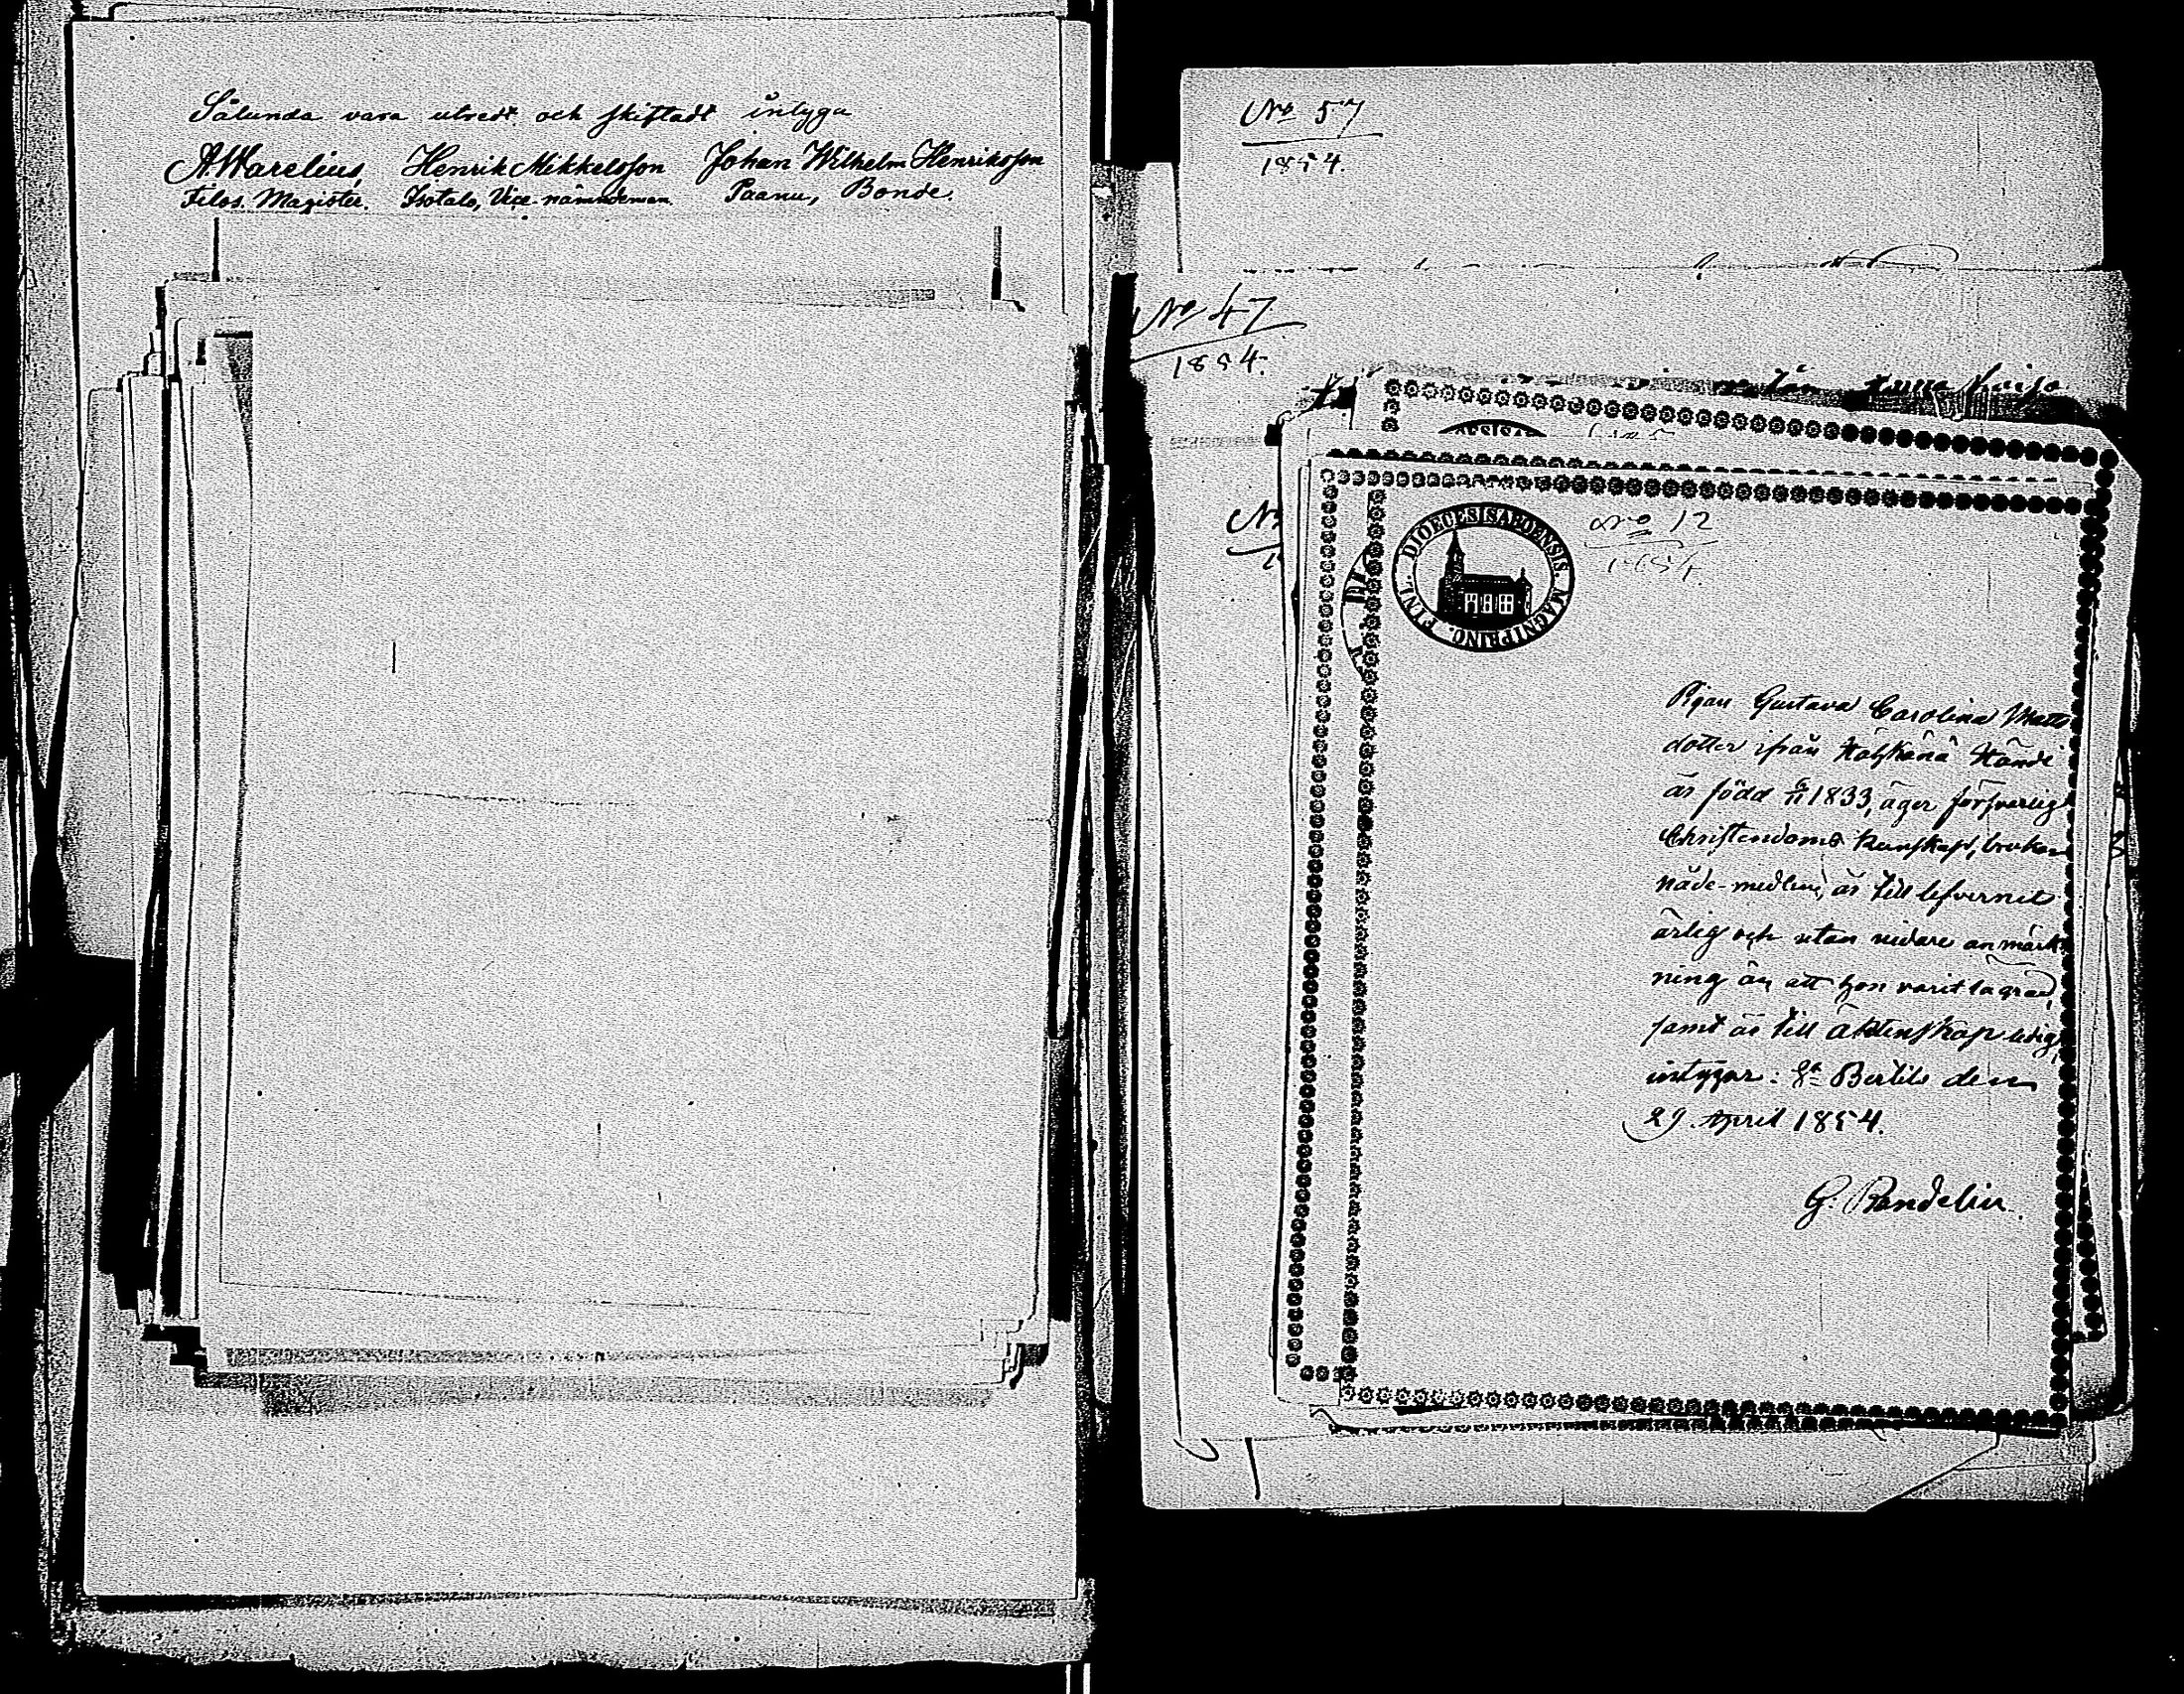 Sålunda vara utredt och skiftadt intyga
A. Warelius, Henrik Mikkelsson Johan Wilhelm Henriksson
Filos. Magister. Isotalo, Vice-nämndeman. Paanu, Bonde.
No 57
1854.
No 47
1854.
Kaisa
DIOECESIS ABOENSIS. MAGNI PRINC. FINL.
No 12
1854.
Pigan Gustava Carolina Matts
dotter ifrån
är född 6/11 1833, äger försvarlig
Christendoms kunskap, brukar
nåde-medlen, är till lefvernet
ärlig och utan vidare anmärk
ning än att hon varit lägrad,
samt är till äktenskap ledig,
intygar: St Bertils den
29. April 1854.
G. Bandelin.